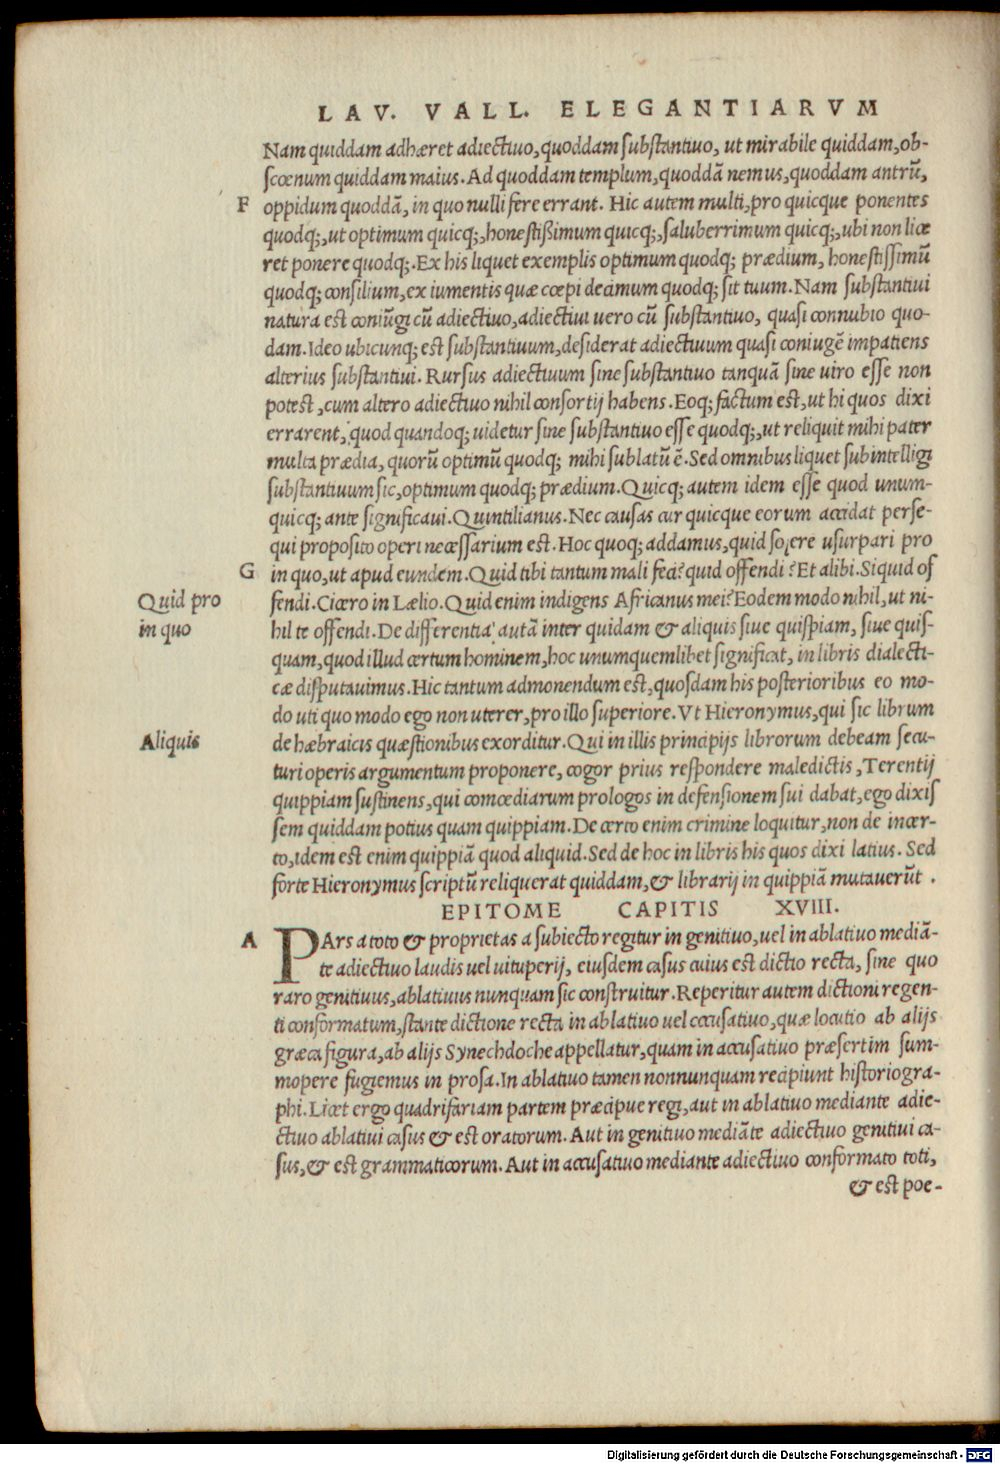 LAV. VALL. ELEGANTIARVM
Nam quiddam adhæret adiectiuo, quoddam substantiuo, ut mirabile quiddam, ob-
scœnum quiddam maius. Ad quoddam templum, quoddã nemus, quoddam antrũ,
F oppidum quoddã, in quo nulli fere errant. Hic autem multi, pro quicque ponentes
quodq;, ut optimum quicq;, honestißimum quicq;, saluberrimum quicq;, ubi non lice
ret ponere quodq;. Ex his liquet exemplis optimum quodq; prædium, honestissimũ
quodq; consilium, ex iumentis quæ cœpi decimum quodq; sit tuum. Nam substantiui
natura est coniũgi cũ adiectiuo, adiectiui uero cũ substantiuo, quasi connubio quo-
dam. Ideo ubicunq; est substantiuum, desiderat adiectiuum quasi coniugẽ impatiens
alterius substantiui. Rursus adiectiuum sine substantiuo tanquã sine uiro esse non
potest, cum altero adiectiuo nihil consortij habens. Eoq; factum est, ut hi quos dixi
errarent, quod quandoq; uidetur sine substantiuo esse quodq;, ut reliquit mihi pater
multa prædia, quorũ optimũ quodq; mihi sublatũ ẽ. Sed omnibus liquet subintelligi
substantiuum sic, optimum quodq; prædium. Quicq; autem idem esse quod unum-
quicq; ante significaui. Quintilianus. Nec causas cur quicque eorum accidat perse-
qui proposito operi necessarium est. Hoc quoq; addamus, quid solere usurpari pro
G in quo, ut apud eundem. Quid tibi tantum mali feci? quid offendi? Et alibi. Siquid of
Quid pro
in quo
fendi. Cicero in Lælio. Quid enim indigens Africanus mei? Eodem modo nihil, ut ni-
hil te offendi. De differentia autã inter quidam & aliquis siue quispiam, siue quis-
quam, quod illud certum hominem, hoc unumquemlibet significat, in libris dialecti-
cæ disputauimus. Hic tantum admonendum est, quosdam his posterioribus eo mo-
do uti quo modo ego non uterer, pro illo superiore. Vt Hieronymus, qui sic librum
Aliquis
de hæbraicis quæstionibus exorditur. Qui in illis principijs librorum debeam secu-
turi operis argumentum proponere, cogor prius respondere maledictis, Terentij
quippiam sustinens, qui comœdiarum prologos in defensionem sui dabat, ego dixis
sem quiddam potius quam quippiam. De certo enim crimine loquitur, non de incer-
to, idem est enim quippiã quod aliquid. Sed de hoc in libris his quos dixi latius. Sed
forte Hieronymus scriptũ reliquerat quiddam, & librarij in quippiã mutauerũt .
EPITOME CAPITIS XVIII.
A PArs a toto & proprietas a subiecto regitur in genitiuo, uel in ablatiuo mediã-
te adiectiuo laudis uel uituperij, eiusdem casus cuius est dictio recta, sine quo
raro genitiuus, ablatiuus nunquam sic construitur. Reperitur autem dictioni regen-
ti conformatum, stante dictione recta in ablatiuo uel accusatiuo, quæ locutio ab alijs
græca figura, ab alijs Synechdoche appellatur, quam in accusatiuo præsertim sum-
mopere fugiemus in prosa. In ablatiuo tamen nonnunquam recipiunt historiogra-
phi. Licet ergo quadrifariam partem præcipue regi, aut in ablatiuo mediante adie-
ctiuo ablatiui casus & est oratorum. Aut in genitiuo mediãte adiectiuo genitiui ca-
sus, & est grammaticorum. Aut in accusatiuo mediante adiectiuo conformato toti,
& est poe-
Digitalisierung gefördert durch die Deutsche Forschungsgemeinschaft - DFG